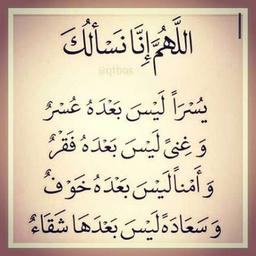 اللَّهُمَّ إِنَّا نَسْأَلُكَ
@qfbqs
يُسْرَاً لَيْسَ بَعْدَهُ عُسْرٌ
وَ غِنىً لَيْسَ بَعْدَهُ فَقْرٌ
وَ أَمْناً لَيْسَ بَعْدَهُ خَوْفٌ
وَ سَعَادَةً لَيْسَ بَعْدَهَا شَقَاءٌ